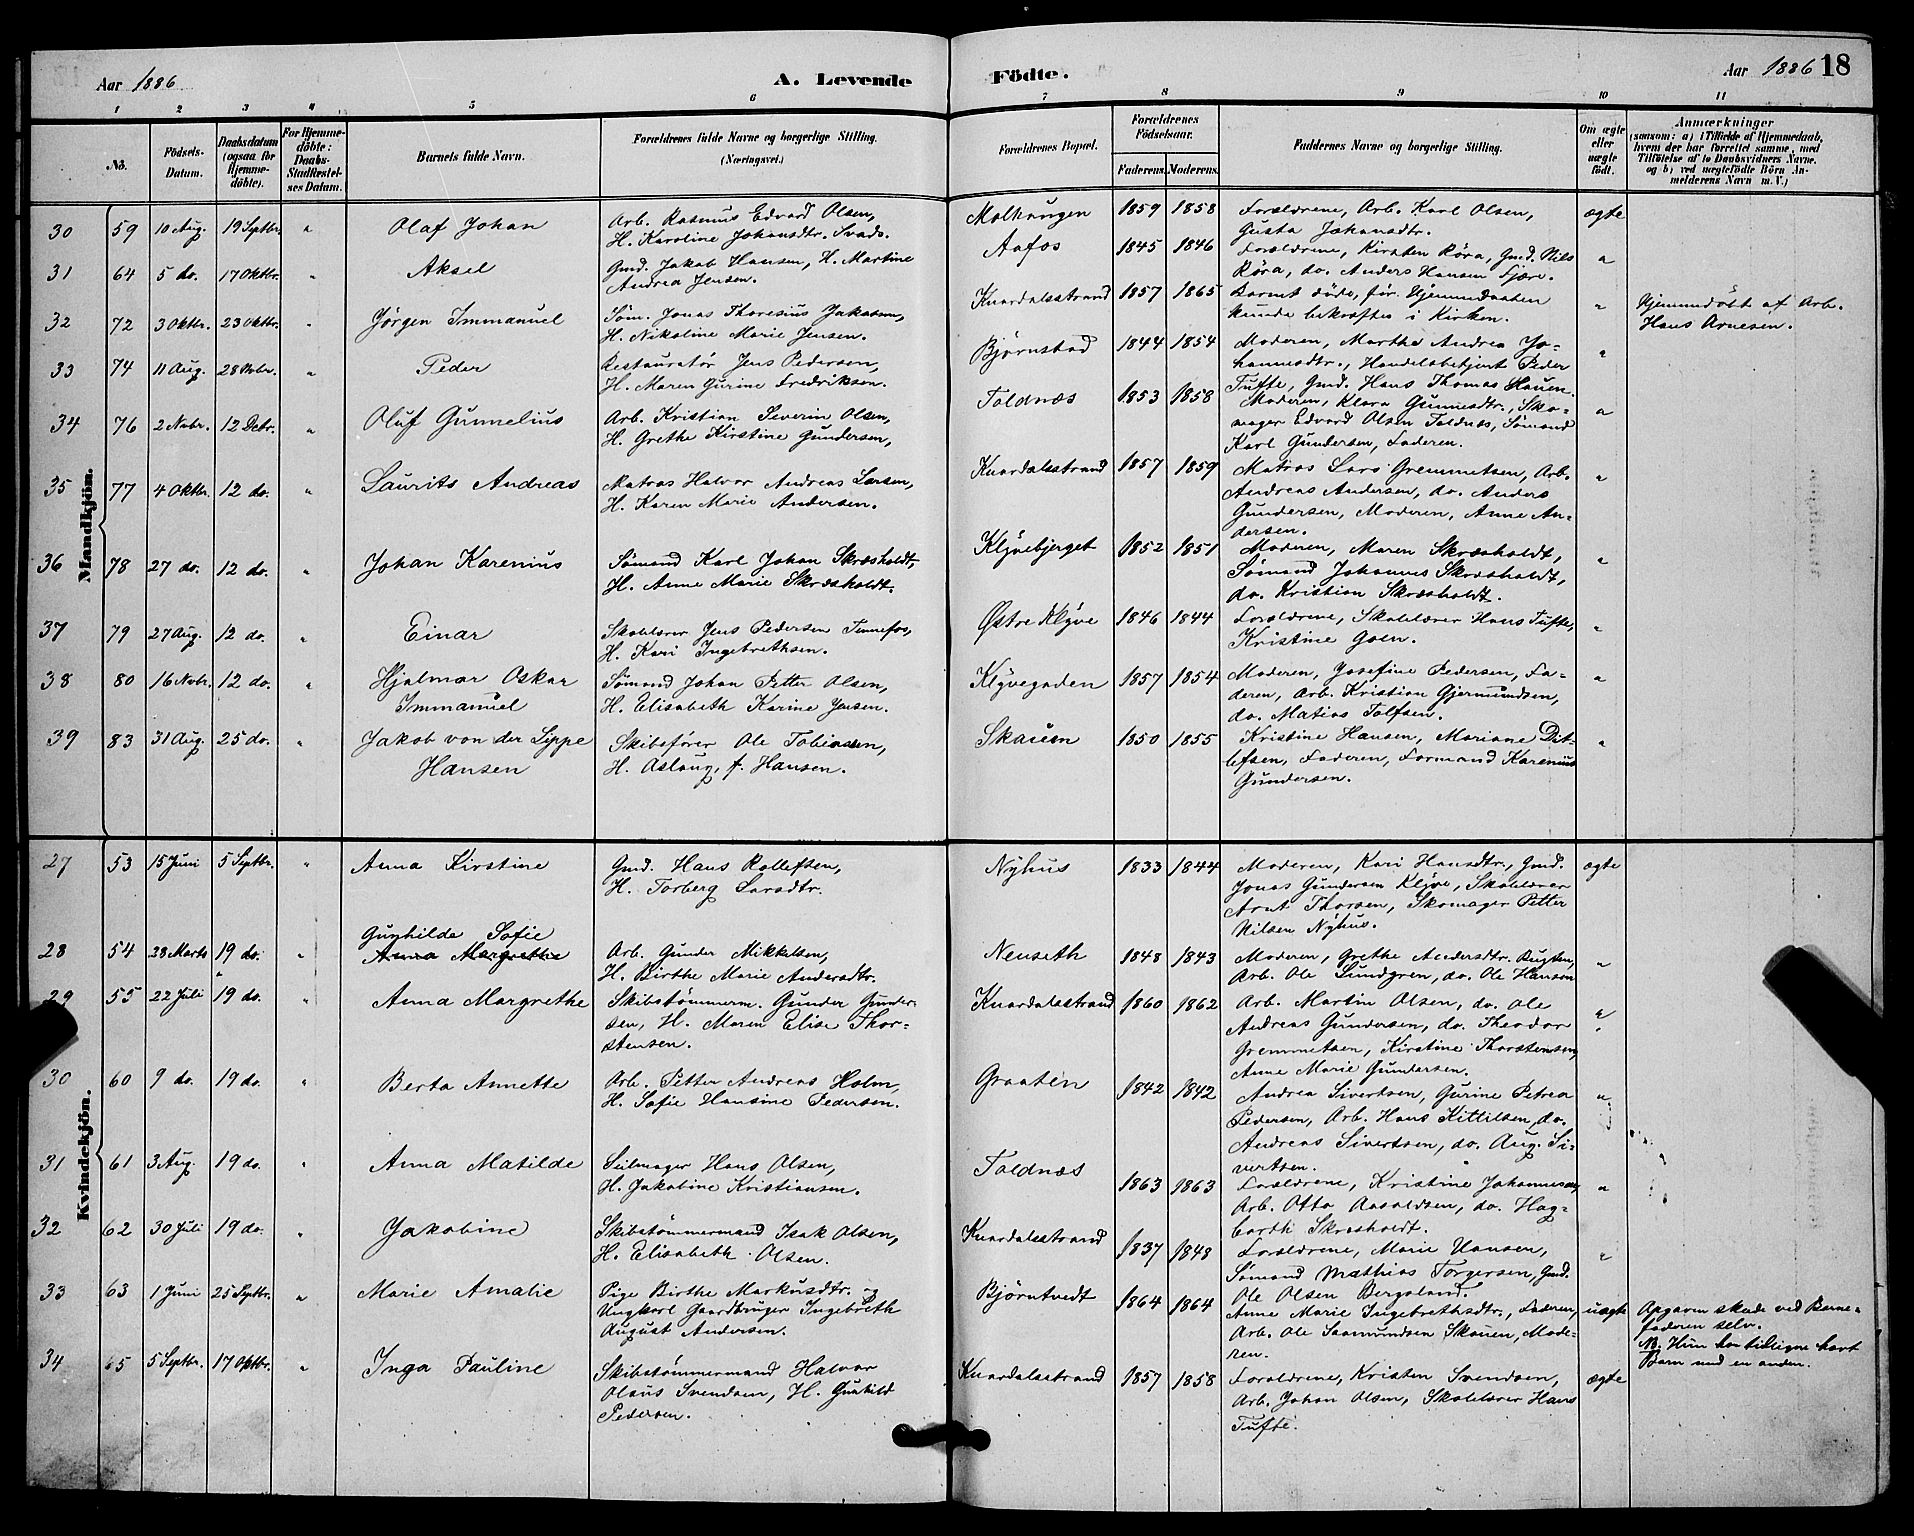 Aar 1886 A. Levende Födte. Aar 1886 18
1 2 3 4 5 6 7 8 9 10 11
No. Födsels-Datum. Daabsdatum (ogsaa for Hjemme-döbte). For Hjemme-döbte: Daabs-Stadfæstelses Datum. Barnets fulde Navn. Forældrenes fulde Navne og borgerlige Stilling. (Næringsvei.) Forældrenes Bopæl. Forældrenes Födselsaar. Faderens. Moderens. Faddernes Navne og borgerlige Stilling. Om ægte eller uægte födt. Anmærkninger (saasom: a) i Tilfælde af Hjemmedaab, hvem der har forrettet samme, med Tilföielse af to Daabsvidners Navne, og b) ved uægtefödte Börn Anmelderens Navn m. V.)
Mandkjön.
30 59 10 Aug. 19 Septbr. " Olaf Johan Arb. Rasmus Edvard Olsen,
H. Karoline Johansdtr. Svads. 1859 1858 Forældrene, Arb. Karl Olsen,
Gusta Johansdtr. ægte
31 64 5 do. 17 Oktbr. " Aksel Gmd. Jakob Hansen, H. Martine
Andrea Jensen. Aafos 1845 1846 Forældrene, Kirsten Röra, Gmd. Nils
Röra, do. Anders Hansen Fjære. "
32 72 3 Oktbr. 23 Oktbr. " Jörgen Immanuel Söm. Jonas Thoresius Jakobsen,
H. Nikoline Marie Jensen. Knardalsstrand 1857 1865 Barnet döde, för Hjemmedaaben
kunde bekræftes i Kirken. " Hjemmedöbt af Arb.
Hans Arnesen.
33 74 11 Aug. 28 Novbr. " Peder Restauratör Jens Pedersen,
H. Maren Gurine Fredriksen. Björnstad 1844 1854 Moderen, Marthe Andrea Jo-
hannesdtr., Handelsbetjent Peder
Tufte, Gmd. Hans Thomas Skauen. "
34 76 2 Novbr. 12 Decbr. " Oluf Gunnelius Arb. Kristian Severin Olsen,
H. Grethe Kirstine Gundersen, Toldnæs 1853 1858 Moderen, Klara Gunnesdtr., Sko-
mager Edvard Olsen Toldnæs, Sömand
Karl Gundersen, Faderen. "
35 77 4 Oktbr. 12 do. " Laurits Andreas Matros Halvor Andreas Larsen,
H. Karen Marie Andersen. Knardalsstrand 1857 1859 Matros Lars Gremmetsen, Arb.
Andreas Andersen, do. Anders
Gundersen, Moderen, Anne An-
dersen. "
36 78 27 do. 12 do. " Johan Karenius Sömand Karl Johan Skræsholdt,
H. Anne Marie Skræsholdt. Klövebjerget 1852 1851 Moderen, Maren Skræsholdt,
Sömand Johannes Skræsholdt,
do. Kristian Skræsholdt. "
37 79 27 Aug. 12 do. " Einar Skolelærer Jens Pedersen Tinnefos,
H. Kari Ingebrethsen. Østre Klyve 1846 1844 Forældrene, Skolelærer Hans Tufte,
Kristine Goen. "
38 80 16 Novbr. 12 do. " Hjalmar Oskar
Immanuel Sömand Johan Petter Olsen,
H. Elisabeth Karine Jensen. Klyvegaden 1857 1854 Moderen, Josefine Pedersen, Fa-
deren, Arb. Kristian Gjermundsen,
do. Matias Tolfsen. "
39 83 31 Aug. 25 do. " Jakob von der Lippe
Hansen Skibsförer Ole Tobiassen,
H. Aslaug, f. Hansen. Skauen 1850 1855 Kristine Hansen, Mariane Dit-
lefsen, Faderen, Formand Karenius
Gundersen. "
Kvindekjön.
27 53 15 Juni 5 Septbr. " Anna Kirstine Gmd. Hans Rollefsen,
H. Torberg Larsdtr. Nyhus 1833 1844 Moderen, Kari Hansdtr., Gmd.
Jonas Gundersen Klyve, Skolelærer
Arnt Thorsen, Skomager Petter
Nilsen Nyhus. ægte
28 54 28 Marts 19 do. " Gunhilde Sofie
Anna Margrethe Arb. Gunder Mikkelsen,
H. Birthe Marie Andersdtr. Nenseth 1848 1843 Moderen, Grethe Andersdtr. Rugten,
Arb. Ole Lundgren, do. Ole Hansen "
29 55 22 Juli 19 do. " Anna Margrethe Skibstömmerm. Gunder Gunder-
sen, H. Maren Elise Thor-
stensen. Knardalsstrand 1860 1862 Arb. Martin Olsen, do. Ole
Andreas Gundersen, do. Theodor
Gremmetsen, Kirstine Thorstensen,
Anne Marie Gundersen. "
30 60 9 do. 19 do. " Berta Annette Arb. Petter Andreas Holm,
H. Sofie Hansine Pedersen. Graaten 1842 1842 Andrea Sivertsen, Gurine Petrea
Pedersen, Arb. Hans Kittilsen, do.
Andreas Sivertsen, do. Aug. Si-
vertsen. "
31 61 3 Aug. 19 do. " Anna Matilde Seilmager Hans Olsen,
H. Jakobine Kristiansen. Toldnæs 1863 1863 Forældrene, Kristine Johannesen,
Arb. Otto Aasoldsen, do. Hag-
barth Skræsholdt. "
32 62 30 Juli 19 do. " Jakobine Skibstömmermand Isak Olsen,
H. Elisabeth Olsen. Knardalsstrand 1837 1848 Forældrene, Marie Hansen,
Sömand Mathias Torgersen, Gmd.
Ole Olsen Bergsland. "
33 63 1 Juni 25 Septbr. " Marie Amalie Pige Birthe Markusdtr. og
Ungkarl Gaardbruger Ingebreth
August Andersen. Björntvedt 1864 1864 Anne Marie Ingebrethsdtr., Faderen,
Arb. Ole Saamundsen Skauen, Mode-
ren. uægte Opgaven skede ved Barne-
faderen selv.
NB. Hun har tidligere havt
Barn med en anden.
34 65 5 Septbr. 17 Oktbr. " Inga Pauline Skibstömmermand Halvor
Olaus Svendsen, H. Gunhild
Pedersen. Knardalsstrand 1857 1858 Forældrene, Kristen Svendsen,
Arb. Johan Olsen, Skolelærer Hans
Tufte. ægte